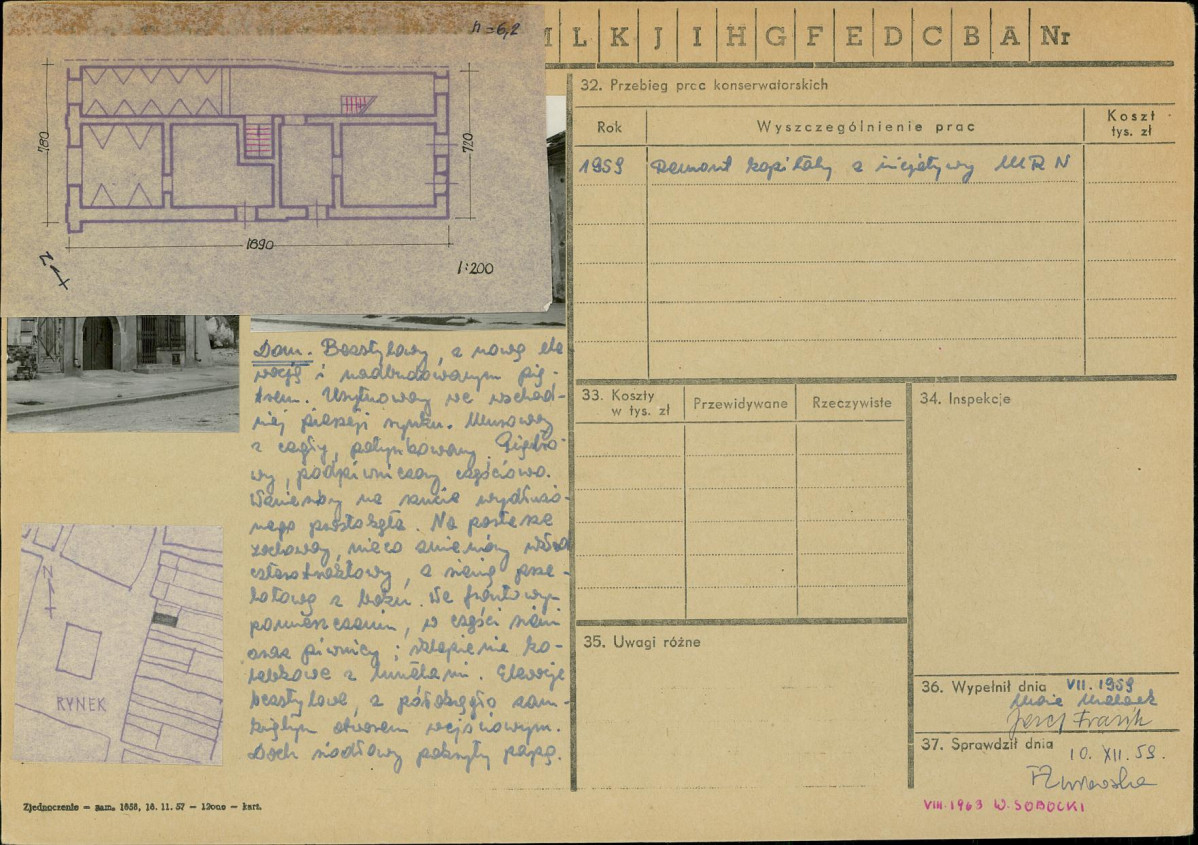 h=6,2
780
720
1890
1:200
N
M L K J I H G F E D C B A Nr
32. Przebieg prac konserwatorskich
Rok
Wyszczególnienie prac
Koszt
tys. zł
1959 Remont kapitalny z inicjatywy MRN
Dom. Bezstylowy, z nową ele
wacją i nadbudowanym pię-
trem. Usytuowany we wschod-
niej pierzei rynku. Murowany
z cegły, potynkowany. Piętro-
wy, podpiwniczony częściowo.
Wzniesiony na rzucie wydłużo-
nego prostokąta. Na parterze
zachowany, nieco zmieniony układ
czterotraktowy, z sienią prze-
lotową z boku. We frontowym
pomieszczeniu, w części sieni
oraz piwnicy; sklepienie ko-
lebkowe z lunetami. Elewacje
bezstylowe, z półokrągło zam-
kniętym otworem wejściowym.
Dach siodłowy pokryty papą.
N
RYNEK
33. Koszty
w tys. zł
Przewidywane
Rzeczywiste
34. Inspekcje
35. Uwagi różne
36. Wypełnił dnia VII. 1959
37. Sprawdził dnia
10. XII. 59.
VIII. 1963 W. SOBOCKI
Zjednoczenie – zam. 1858, 18. 11. 57 – 12000 – kart.